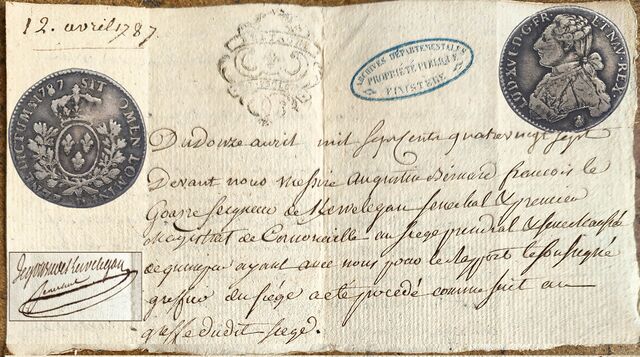 12. avril 1787.
ARCHIVES DÉPARTEMENTALES
PROPRIÉTÉ PUBLIQUE
FINISTÈRE
LUD.XVI.D.G.FR
ET NAV.REX
1787 SIT
NOMEN DOMINI
Du douze avril mil Sept Cents quatre vingt Sept
Devant nous Messire Augustin Bernard francois le
Goazre Seigneur de Kervelegan Senechal & premier
Magistrat de Cornouaille au Siege presidial & Senechaussée
de quimper ayant avec nous pour le Rapport le Soussigné
greffier du Siége a eté procedé comme suit au
greffe dudit Siege.
Senechal